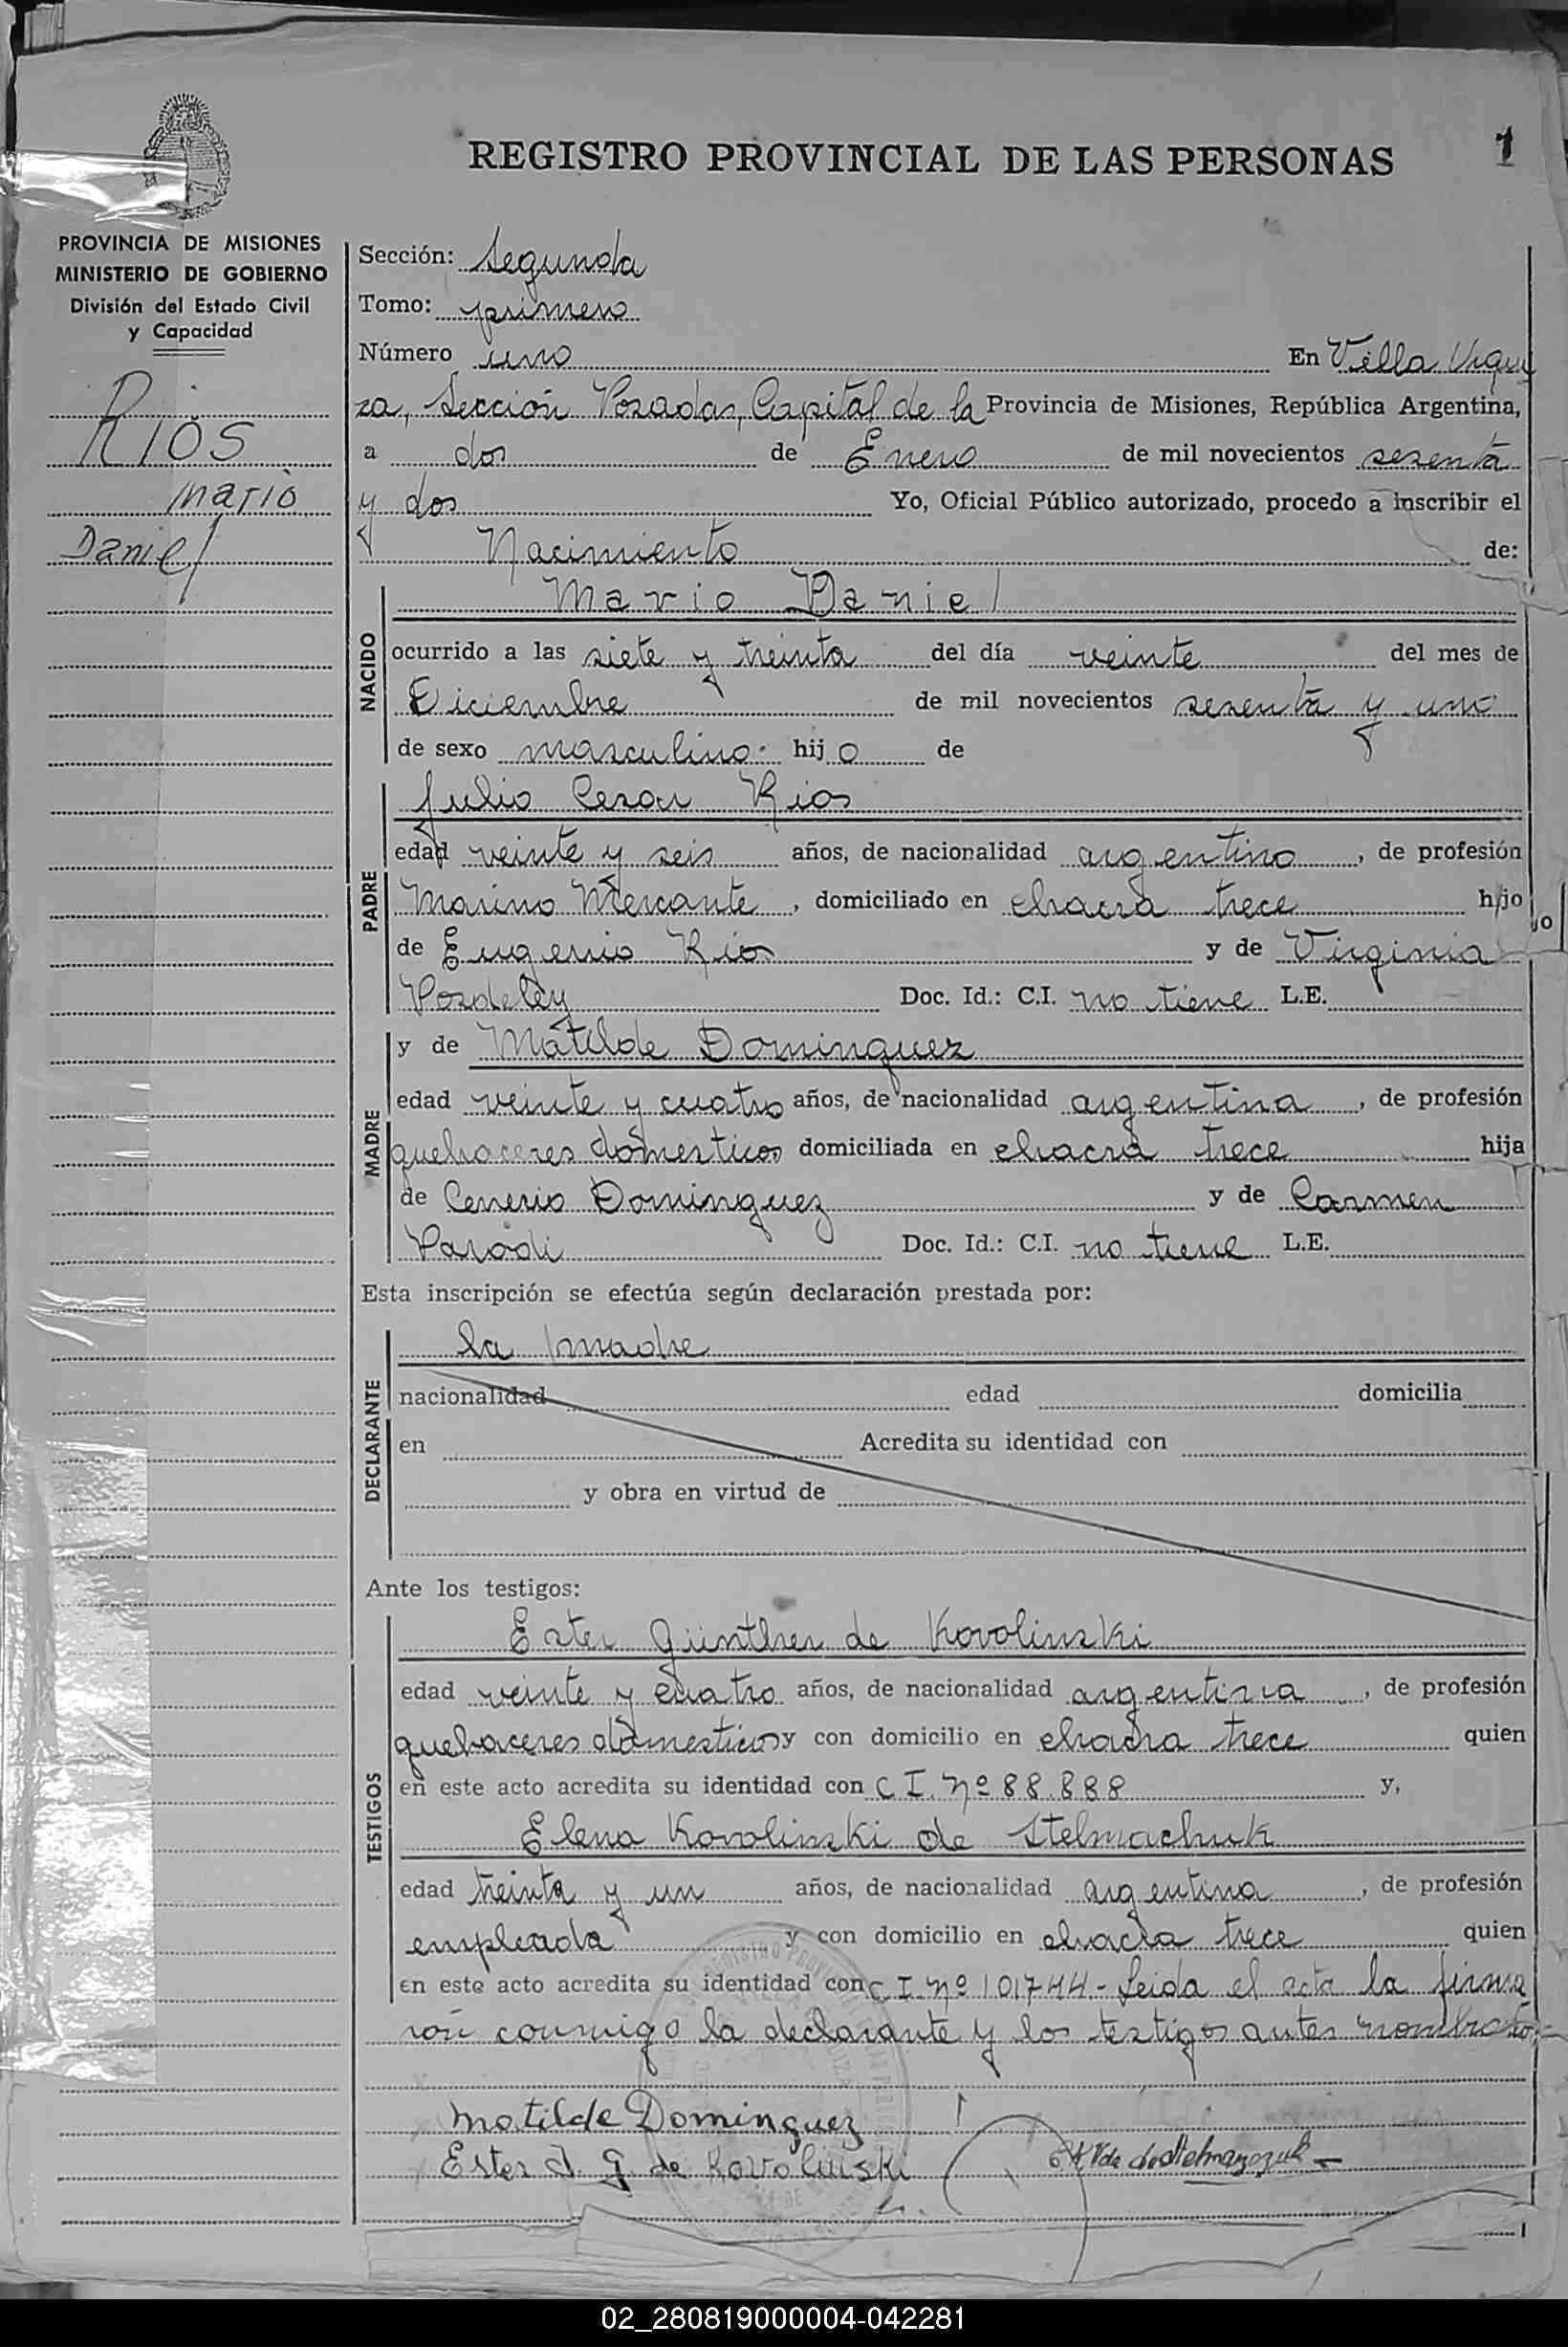 REGISTRO PROVINCIAL DE LAS PERSONAS
1
PROVINCIA DE MISIONES
MINISTERIO DE GOBIERNO
División del Estado Civil
y Capacidad
Rios
Mario
Daniel
Sección: Segunda
Tomo: primero
Número uno En Villa Urqui
za, Sección Posadas, Capital de la Provincia de Misiones, República Argentina,
a dos de Enero de mil novecientos sesenta
y dos Yo, Oficial Público autorizado, procedo a inscribir el
Nacimiento de:
NACIDO
Mario Daniel
ocurrido a las siete y treinta del día veinte del mes de
Diciembre de mil novecientos sesenta y uno
de sexo masculino hijo de
PADRE
Julio Cesar Rios
edad veinte y seis años, de nacionalidad argentino, de profesión
Marino Mercante, domiciliado en chacra trece hijo
de Eugenio Rios y de Virginia
Doc. Id.: C.I. no tiene L.E.
MADRE
y de Matilde Dominguez
edad veinte y cuatro años, de nacionalidad argentina, de profesión
quehaceres domesticos domiciliada en chacra trece hija
de Cenerio Dominguez y de Carmen
Parodi Doc. Id.: C.I. no tiene L.E.
Esta inscripción se efectúa según declaración prestada por:
DECLARANTE
la madre
nacionalidad edad domicilia
en Acredita su identidad con
y obra en virtud de
Ante los testigos:
TESTIGOS
Ester Günther de Kovolinski
edad veinte y cuatro años, de nacionalidad argentina, de profesión
quehaceres domesticos y con domicilio en chacra trece quien
en este acto acredita su identidad con C I. Nº 88.888 y,
Elena Kovolinski de Stelmachuk
edad treinta y un años, de nacionalidad argentina, de profesión
empleada y con domicilio en chacra trece quien
en este acto acredita su identidad con C I. Nº 101744 - Leida el acta la firma
rón conmigo la declarante y los testigos antes nombrados
Matilde Dominguez
Ester A. G. de Kovolinski
02_280819000004-042281